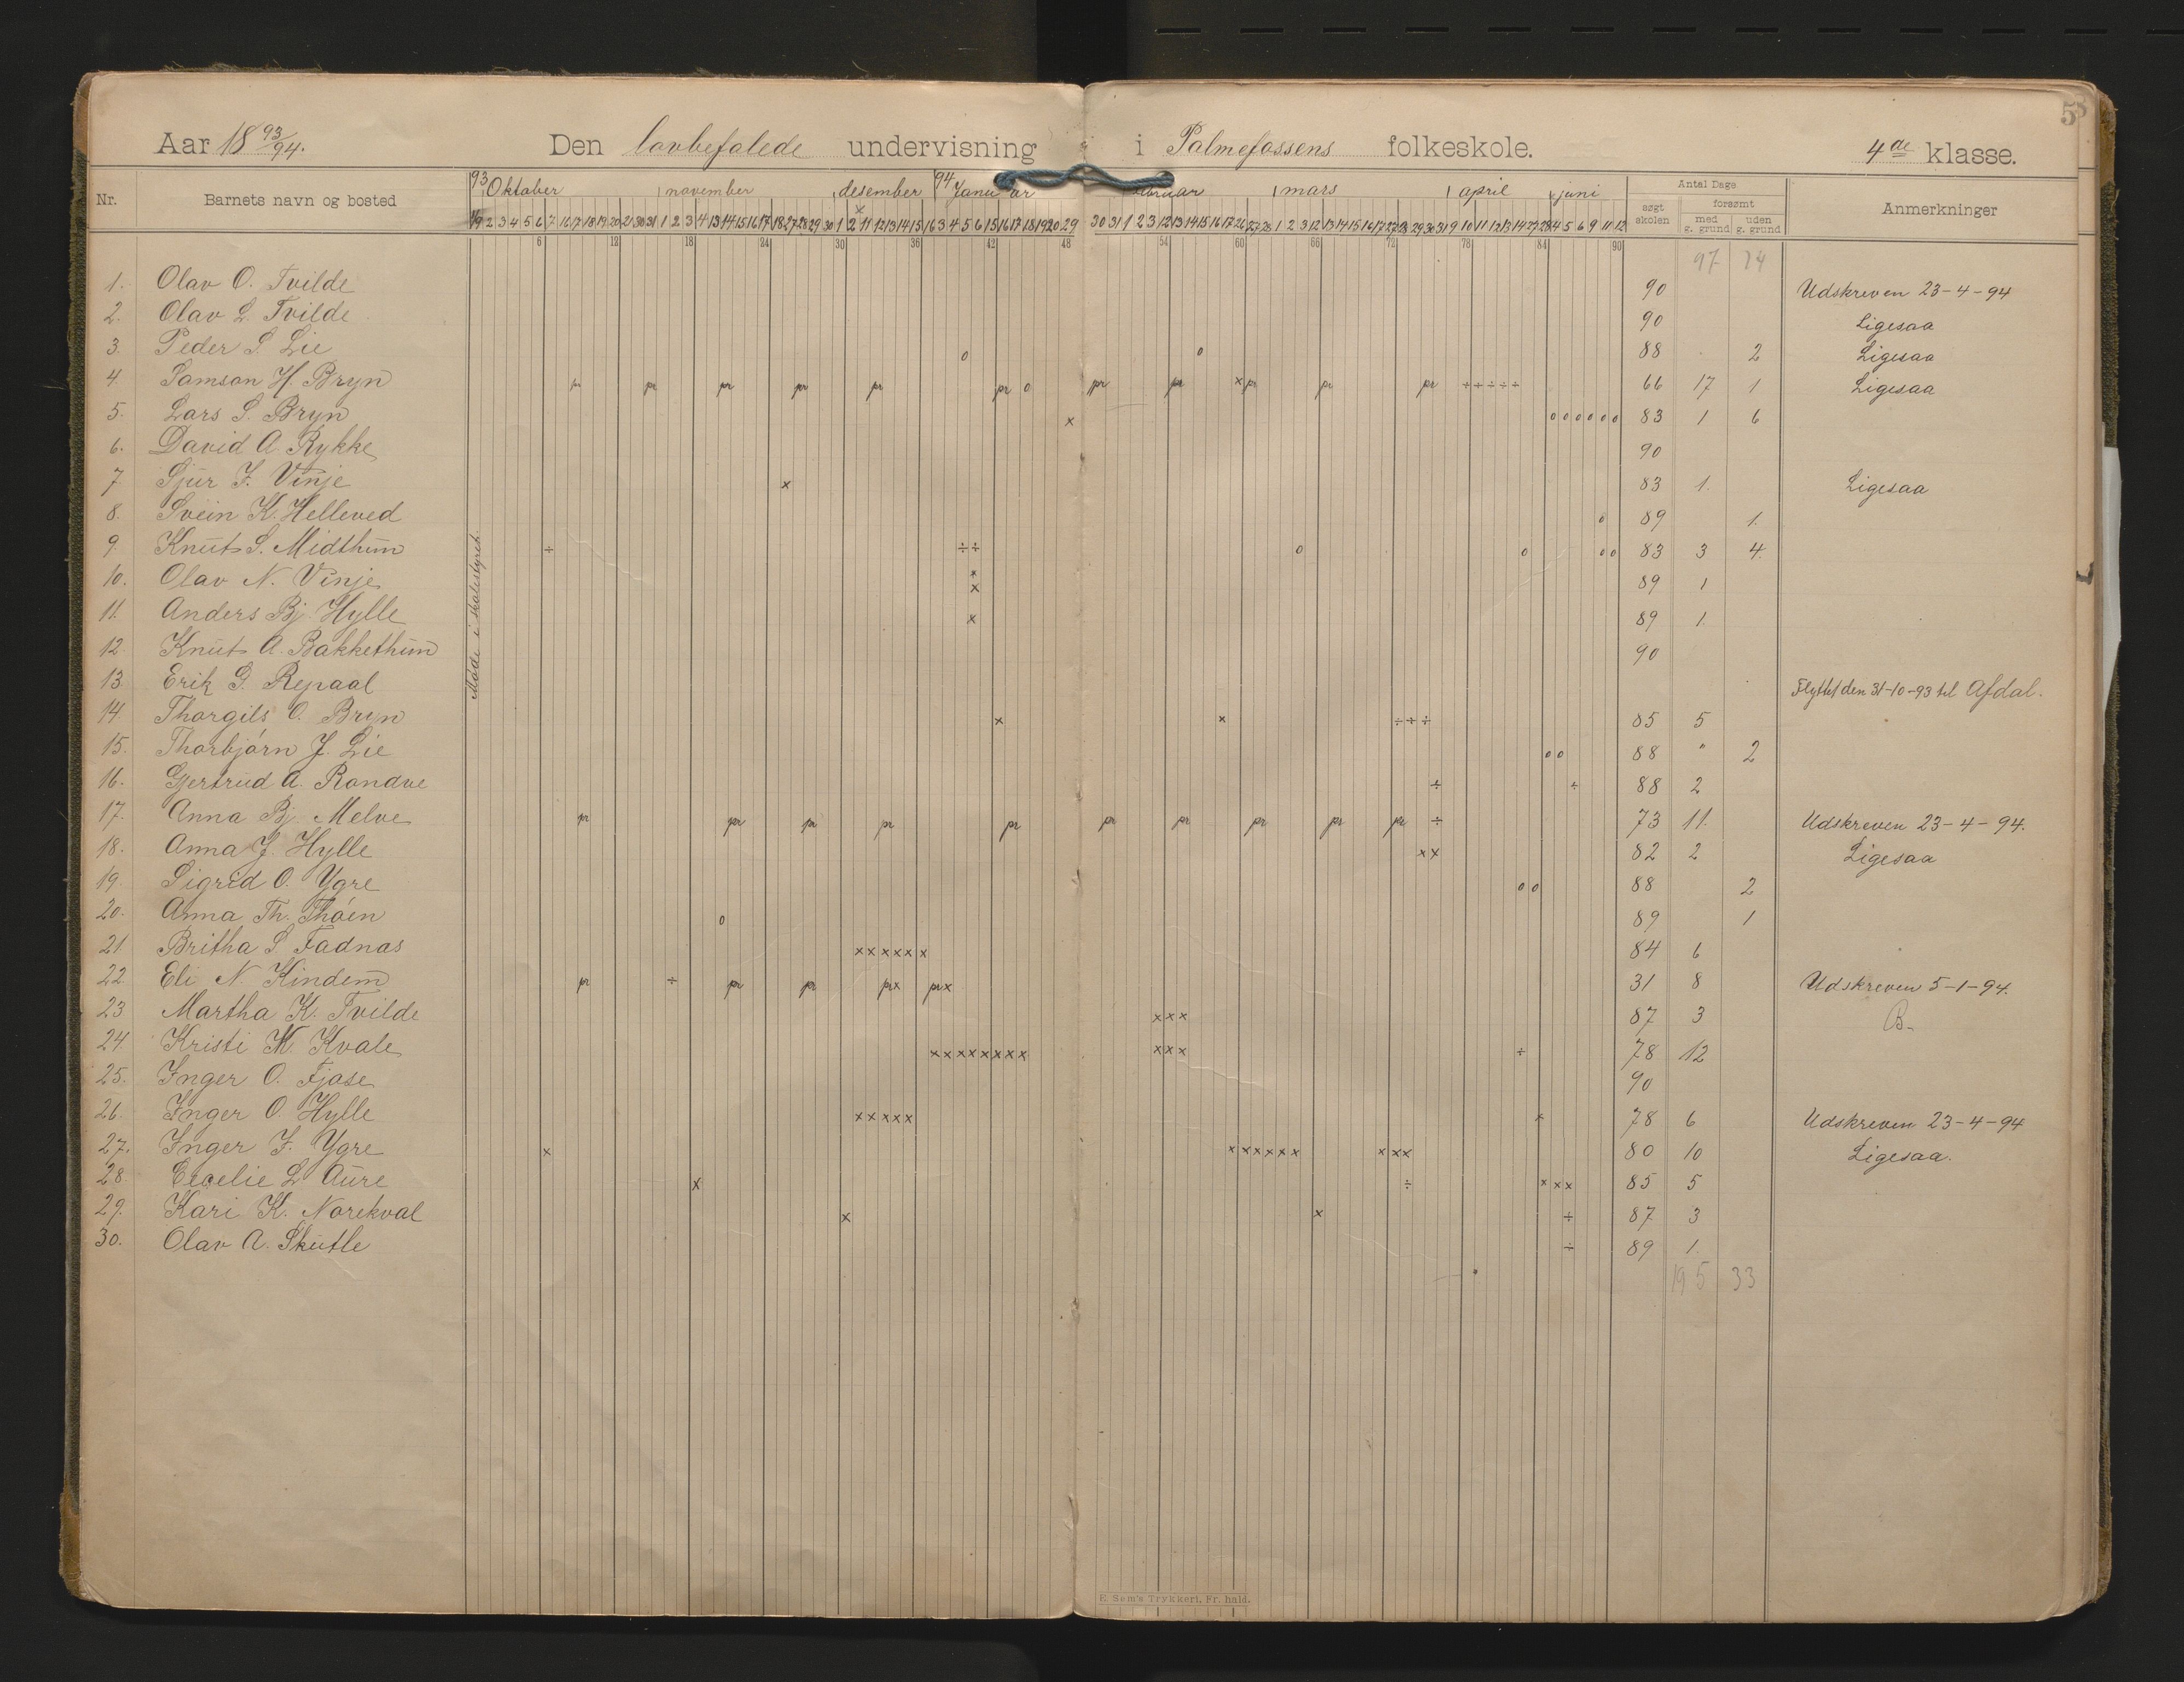 58
Aar 18 93/94. Den lovbefalede undervisning i Palmefossens folkeskole. 4de klasse.
Nr. Barnets navn og bosted 93 Oktober november desember 94 Januar februar mars april juni Antal Dage Anmerkninger
søgt skolen forsømt med g. grund uden g. grund
6 12 18 24 30 36 42 48 54 60 66 72 78 84 90
97 24
Møde i skolestyret.
1. Olav O. Tvilde 90 Udskreven 23-4-94
2. Olav L. Tvilde 90 Ligesaa
3. Peder S. Lie o o 88 2 Ligesaa
4. Samson H. Bryn pr pr pr pr pr pr o pr pr x pr pr pr ÷ ÷ ÷ ÷ ÷ 66 17 1 Ligesaa
5. Lars S. Bryn x o o o o o o 83 1 6
6. David A Rykke 90
7 Sjur F. Vinje x 83 1. Ligesaa
8. Svein K. Helleved o 89 1.
9. Knut S. Midthun ÷ ÷ ÷ o o o o 83 3 4.
10. Olav N. Vinje x x 89 1
11. Anders Bj. Hylle x 89 1.
12. Knut A. Bakkethun 90
13. Erik G. Repaal Flyttet den 31-10-93 til Afdal.
14 Thorgils O. Bryn x x ÷ ÷ ÷ 85 5
15. Thorbjørn J. Lie o o 88 " 2
16. Gjertrud A. Rondve ÷ ÷ 88 2
17. Anna Bj. Melve pr pr pr pr pr pr pr pr pr pr ÷ 73 11. Udskreven 23-4-94.
18. Anna J. Hylle x x 82 2 Ligesaa
19. Sigrid O. Ygre o o 88 2
20. Anna Th. Thøen o 89 1
21 Britha S Fadnas x x x x x x 84 6
22. Eli N. Kindem pr ÷ pr pr pr x pr x 31 8 Udskreven 5-1-94.
23 Martha K. Tvilde x x x 87 3 B.
24. Kristi M. Kvale x x x x x x x x x x x ÷ 78 12
25. Inger O. Fjose 90
26. Inger O. Hylle x x x x x x 78 6 Udskreven 23-4-94
27. Inger F. Ygre x x x x x x x x x x 80 10 Ligesaa.
28. Cecelie L Aure x ÷ x x x 85 5
29. Kari K. Norekval x x ÷ 87 3
30. Olav A. Skutle ÷ 89 1.
195 33
F. Sem's Trykkeri, Fr. hald.